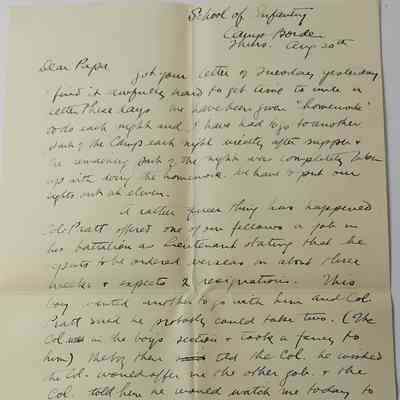 School of Infantry
Camp Borden
Thurs. Aug 20th
Dear Papa
Got your letter of Tuesday yesterday
I find it awfully hard to get time to write a
letter these days. We have been given "homework"
to do each night and I have had to go to another
part of the Camp each night directly after supper &
the remaining part of the night was completely taken
up with doing the homework. We have to put our
lights out at eleven.
A rather queer thing has happened
Col. Pratt offered one of our fellows a job in
his battalion as Lieutenant stating that he
expects to be ordered overseas in about three
weeks & expects 2 resignations. This
boy wanted another to go with him and Col.
Pratt said he probably could take two. (The
Col. was in the boys section & took a fancy to
him) the boy then told the Col. he wished
the Col. would offer me the other job. & the
Col. told him he would watch me today to